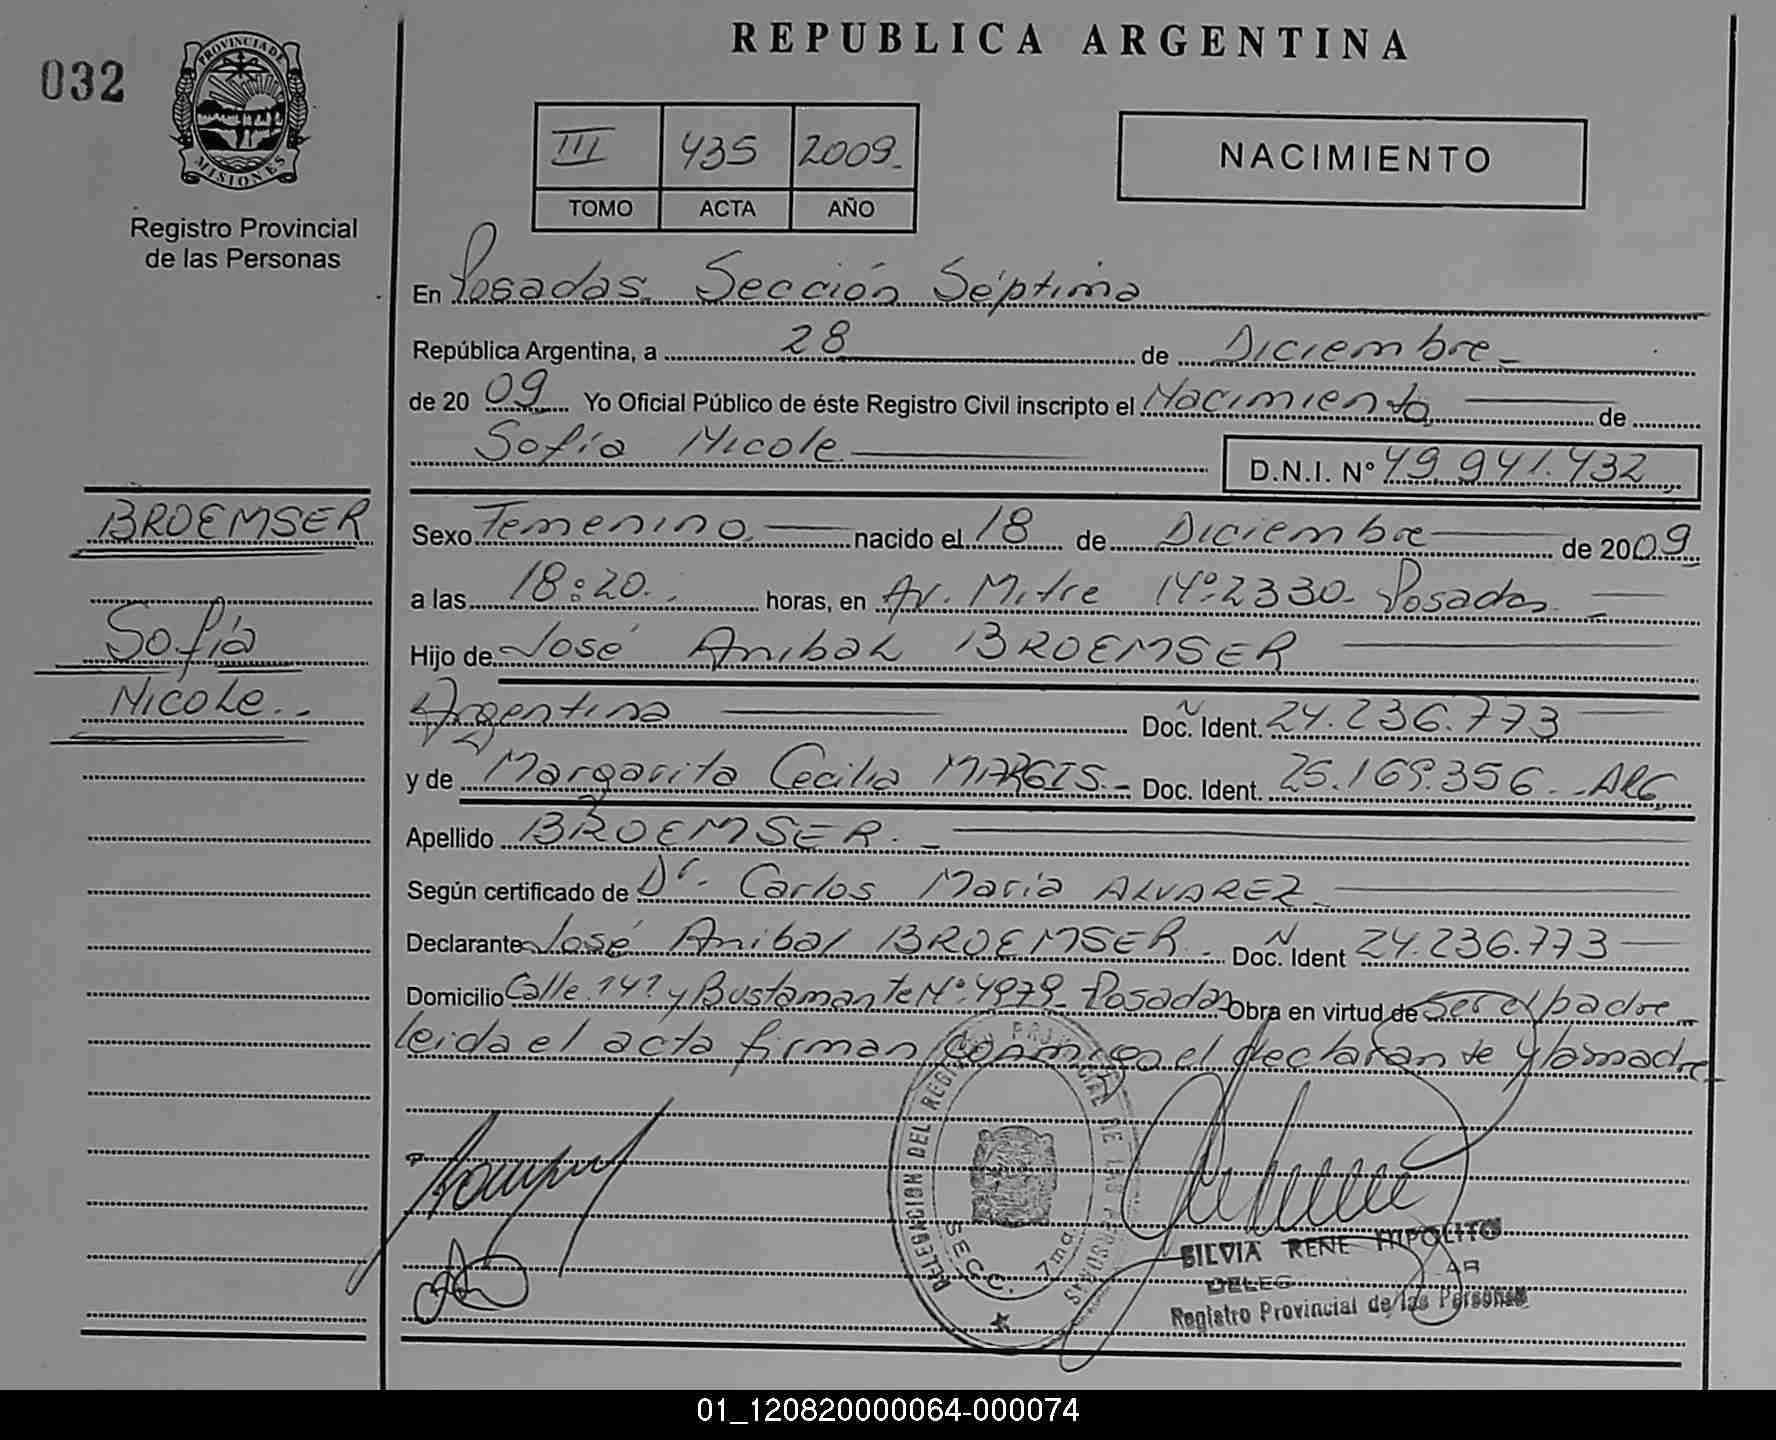 REPUBLICA ARGENTINA
032
PROVINCIA DE
MISIONES
Registro Provincial
de las Personas
III 435 2009.
TOMO ACTA AÑO
NACIMIENTO
En Posadas. Sección Séptima
República Argentina, a 28 de Diciembre
de 2009 Yo Oficial Público de éste Registro Civil inscripto el Nacimiento de
Sofía Nicole D.N.I. N° 49.941.432
BROEMSER
Sofía
Nicole
Sexo Femenino nacido el 18 de Diciembre de 2009
a las 18:20. horas, en Av. Mitre Nº:2330- Posadas
Hijo de José Anibal BROEMSER
Argentina Doc. Ident. 24.236.773
y de Margarita Cecilia MARGIS.- Doc. Ident. 25.169.356.- ARG
Apellido BROEMSER.-
Según certificado de Dr. Carlos María ALVAREZ
Declarante José Anibal BROEMSER.- Doc. Ident 24.236.773
Domicilio Calle 141 y Bustamante Nº:4979- Posadas Obra en virtud de ser el padre
leida el acta firman conmigo el declarante y la madre
DELEGACION DEL REGISTRO PROVINCIAL DE LAS PERSONAS
SECC. 7ma.
SILVIA RENE HIPOLITO
Registro Provincial de las Personas
01_120820000064-000074